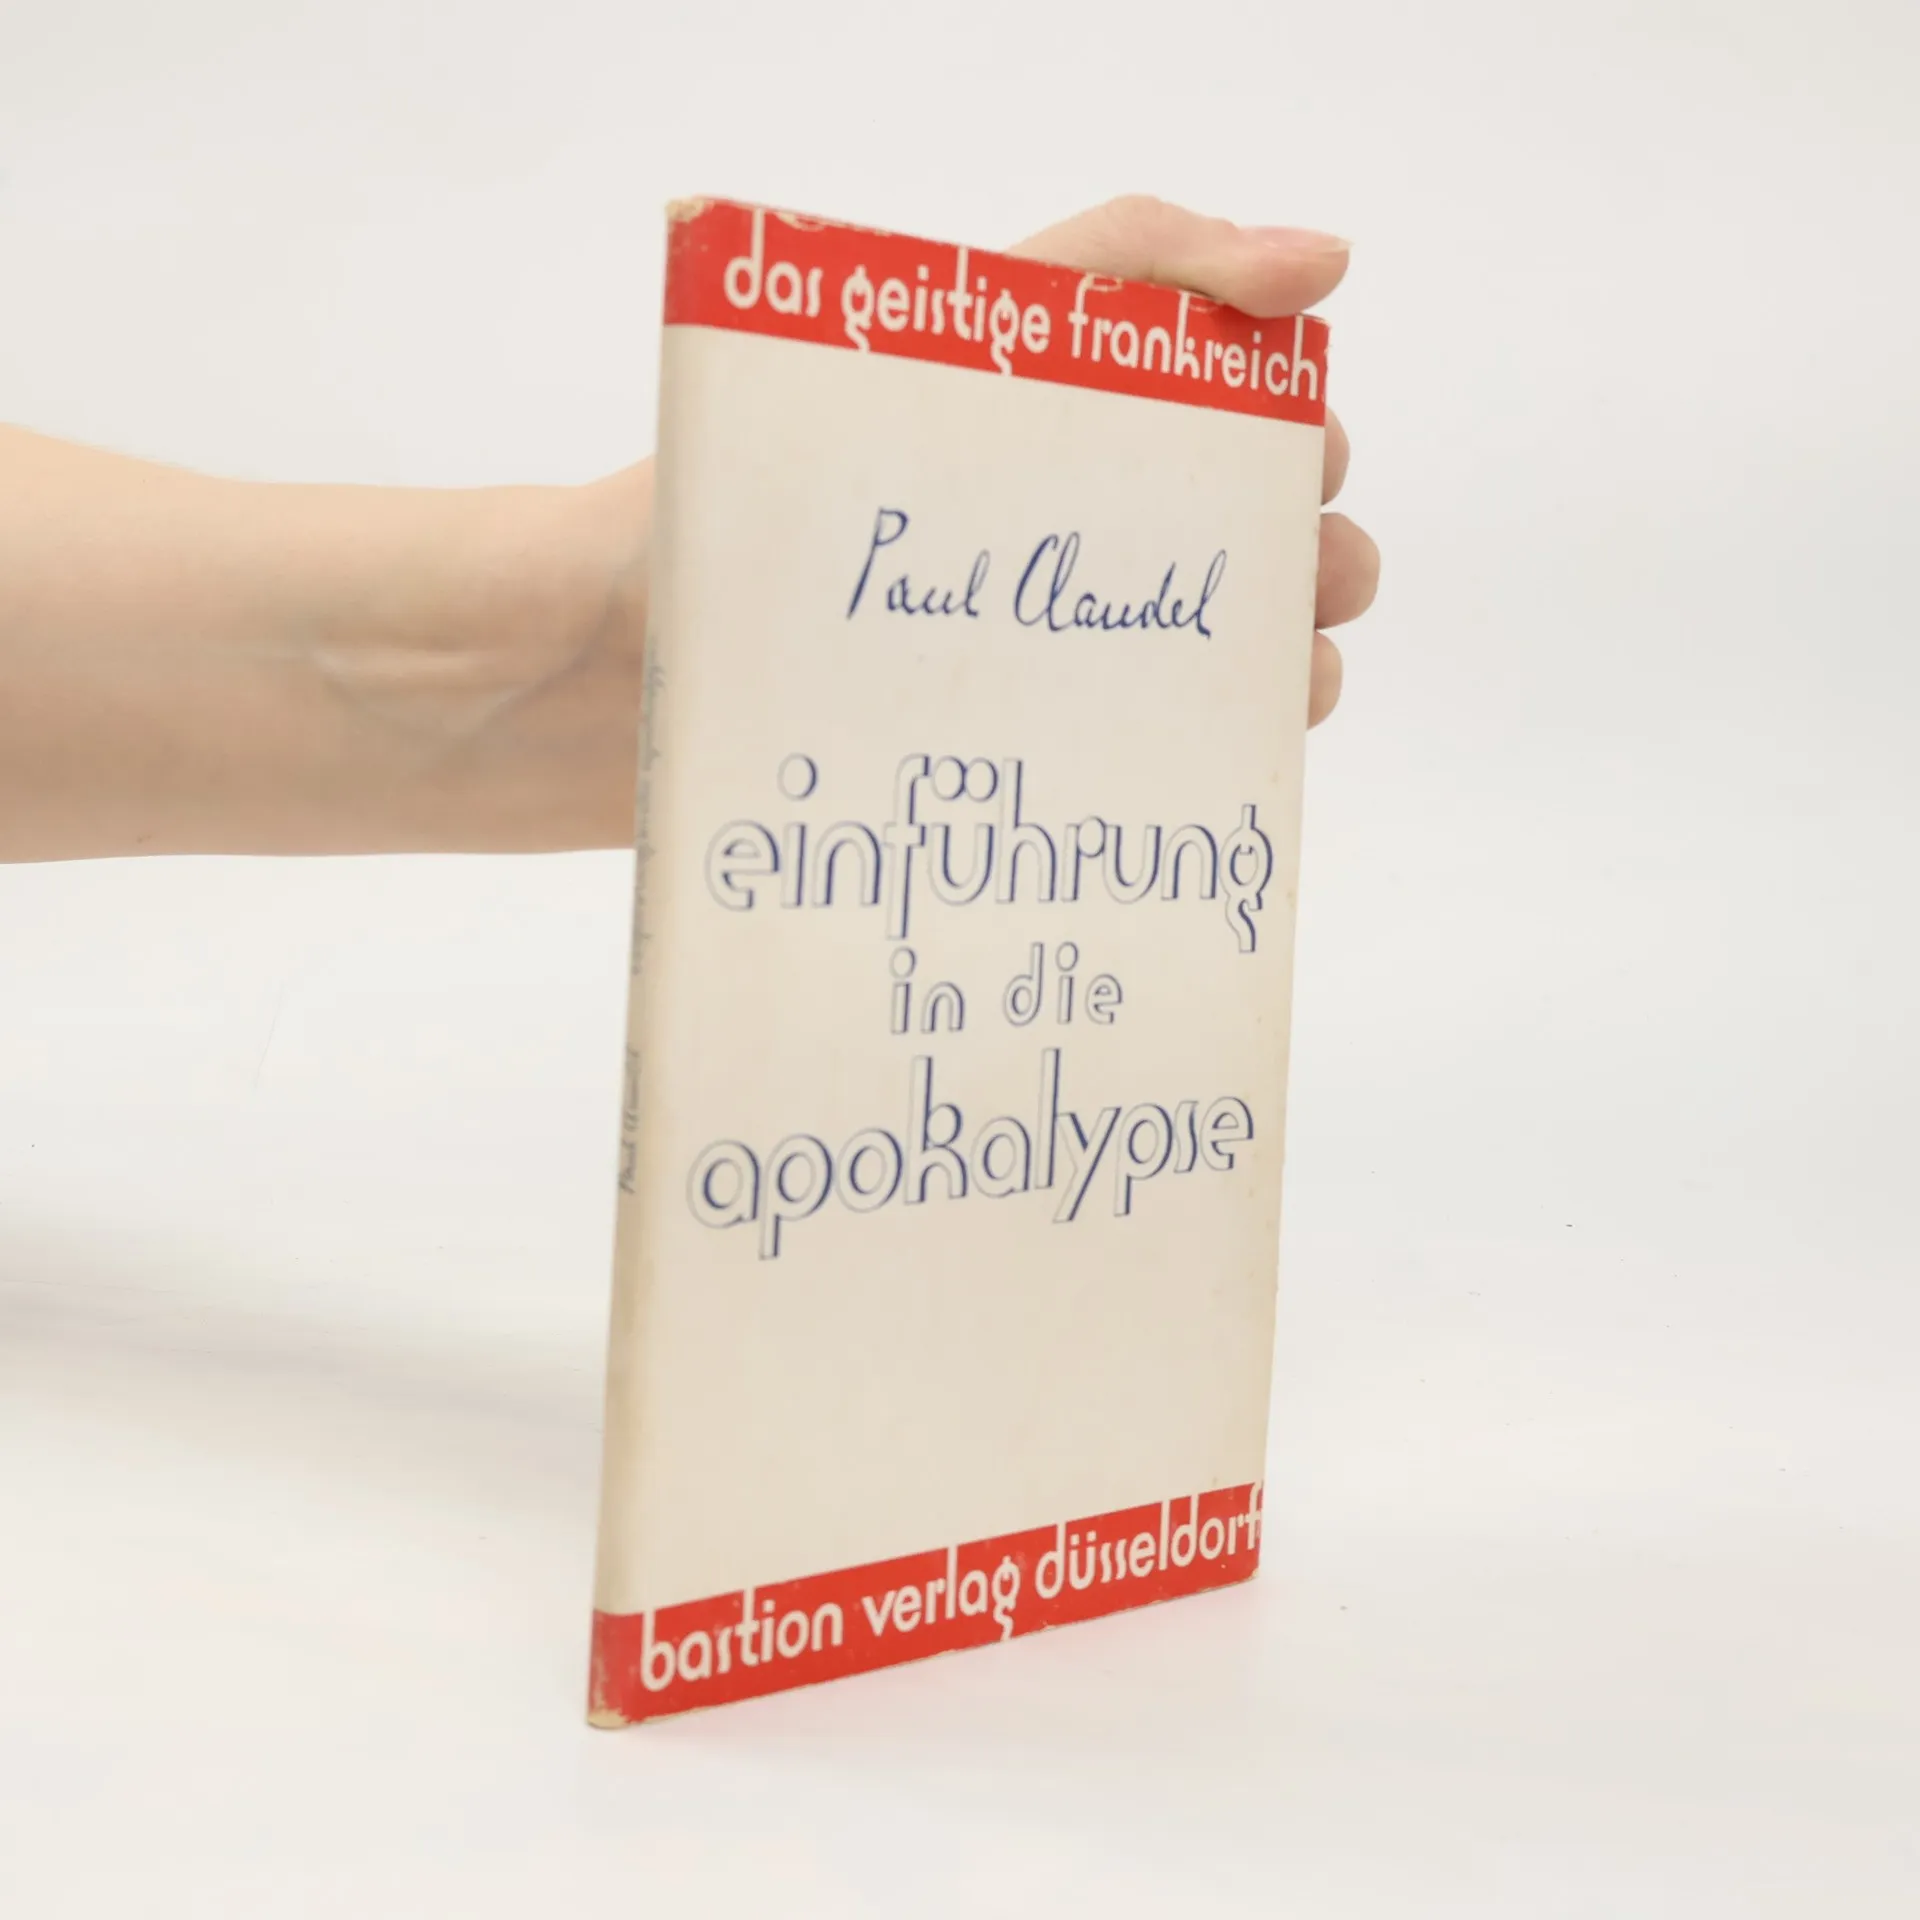 das geistige frankreich
Paul Claudel
einführung
in die
apokalypse
bastion verlag düsseldorf